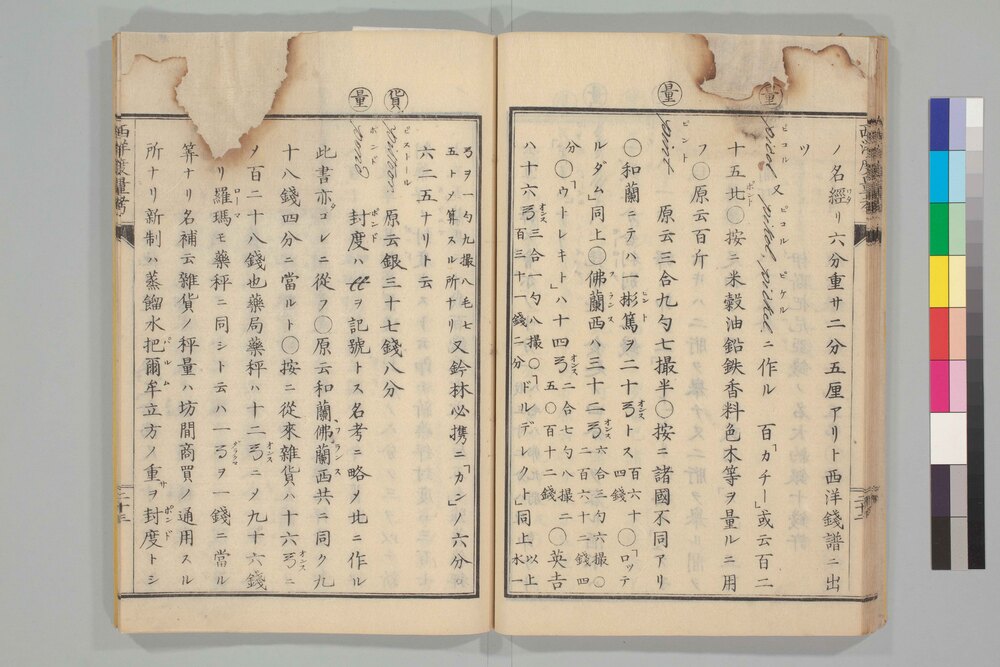 ノ名經リ六分重サ二分五厘アリト西洋錢譜ニ出
ツ
量
picol 又 pikol, pickel ニ作ル 百「カチー」或云百二
十五比○按ニ米穀油鉛鉄香料色木等ヲ量ルニ用
フ○原云百斤
量
pint 原云三合九勺七撮半○按ニ諸國不同アリ
○和蘭ニテハ一彬篤二十ヲトス 百六十四錢 ○「ロッテ
ルダム」同上○佛蘭西ハ三十二 六合三勺六撮○二百六十二錢四
分 ○「ウトレキト」ハ十四 二合七勺八撮二五○百十二錢 ○英吉
ハ十六 三合一勺八撮○百三十一錢二分 「ドルデレクト」同上以上水一
ヲ一勺九撮八毛七
五トメ算スル所ナリ又鈴林必携ニ「カン」ノ六分
六二五ナリト云
貨
原云銀三十七錢八分
量
封度ハ ℔ヲ記號トス名考ニ略メ比ニ作ル
此書亦コレニ從フ○原云和蘭佛蘭西共ニ同ク九
十八錢四分ニ當ルト○按ニ從來雜貨ハ十六ニ
ヲ百二十八錢也藥局藥秤ハ十二ニメ九十六錢
リ羅瑪モ藥秤ニ同シト云ハ一ヲ一錢ニ當ル
筭ナリ名補云雜貨ノ秤量ハ坊間商買ノ通用スル
所ナリ新制ハ蒸餾水把爾牟立方ノ重ヲ封度トシ
二十三